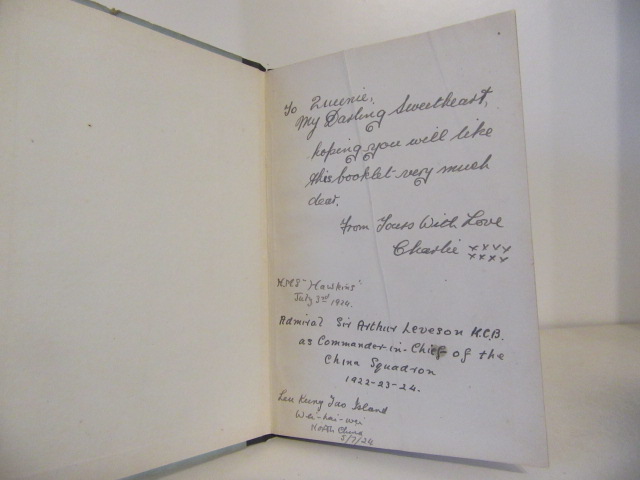 To Queenie,
My Darling Sweetheart,
hoping you will like
this booklet very much
dear.
From Yours With Love
Charlie xxxx
xxxx
H.M.S "Hawkins"
July 3rd 1924.
Admiral Sir Arthur Leveson K.C.B.
as Commander-in-Chief of the
China Squadron
1922-23-24.
Leu Kung Tao Island
Wei-hai-wei
North China
5/7/24